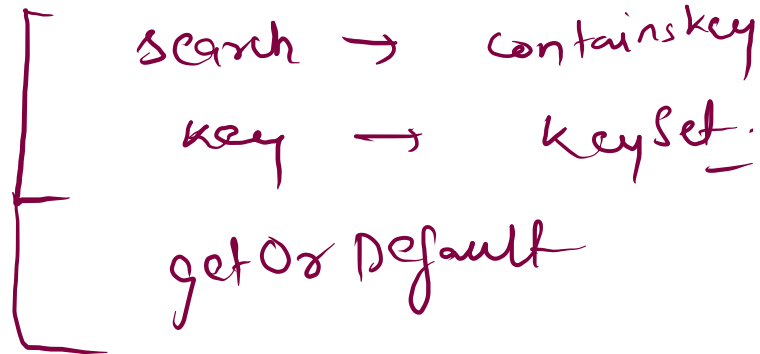 search → containskey
key → keyset.
getOrDefault